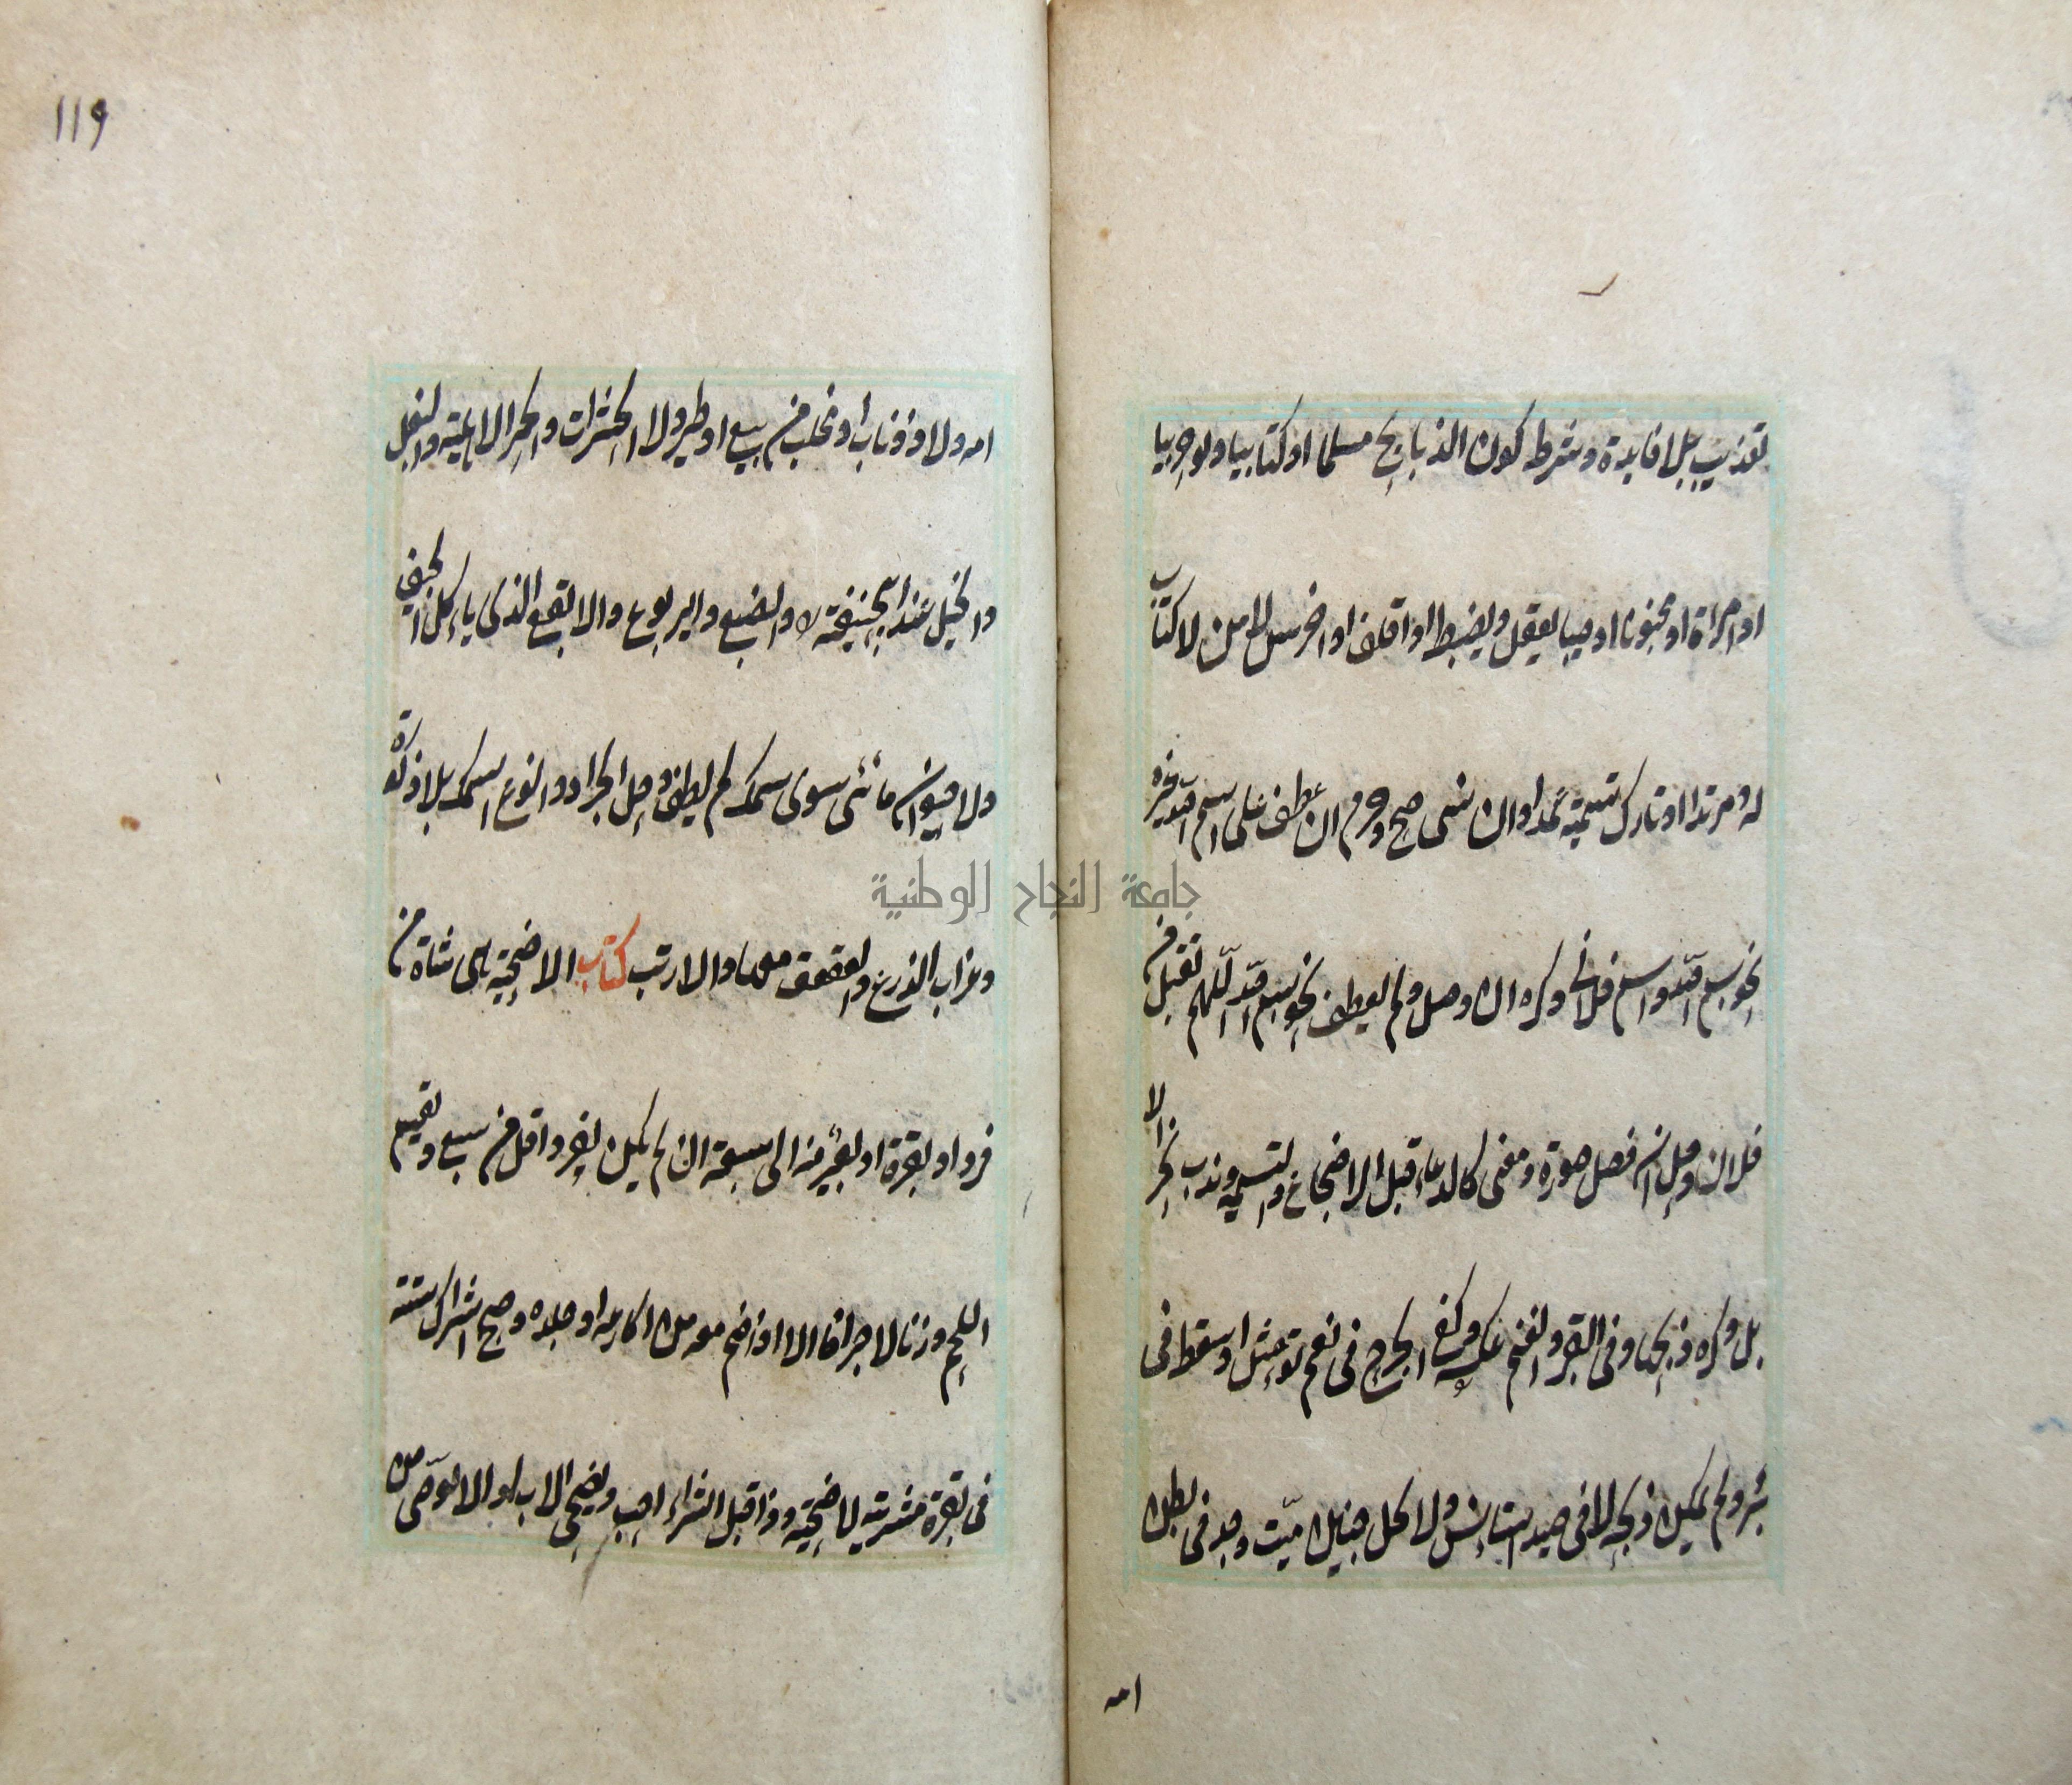 تعذيب بلا فايدة وشرط كون الذبايح مسلما او كتابيا ولو حربيا
او امراة او مجنونا او صبيا يعقل ويضبط او اقلف او اخرس لا من لا كتاب
له ومرتدا او تارك تسمية عمدا وان نسى صح وحرم ان عطف على اسم الله غيره
نحو بسم الله واسم فلان وكره ان وصل ولم يعطف نحو بسم الله اللهم تقبل من
فلان وحل ان فصل صورة ومعنى كالدعاء قبل الاضجاع والتسمية وندب نحر الا
بل وكره ذبحها وفى البقر والغنم عكسه وكفى الجرح فى نعم توحش او سقط فى
بئر ولم يمكن ذبحه لا فى صيد استانس ولا حل جنين ميت وجد فى بطن
امه
١١٩
امه ولا ذو ناب او مخلب من سبع او طير ولا الحشرات والحمر الاهلية والبغل
والخيل عند ابى حنيفة لا والضبع واليربوع والابقع الذى ياكل الجيف
ولا حيوان مائى سوى سمك لم يطف وحل الجراد وانواع السمك بلا ذكوة
وغراب الزرع والعقعق معها والارنب كتاب الاضحية هى شاة من
فرد او بقرة او بعير منه الى سبعة ان لم يكن لفرد اقل من سبع وتقسيم
اللحم وزنا لا جزافا الا اذا ضم معه من اكارعه او جلده وصح اشراك ستة
فى بقرة مشرية لاضحية وذا قبل الشراء احب ويضحى الاب او الوصى من
جامعة النجاح الوطنية